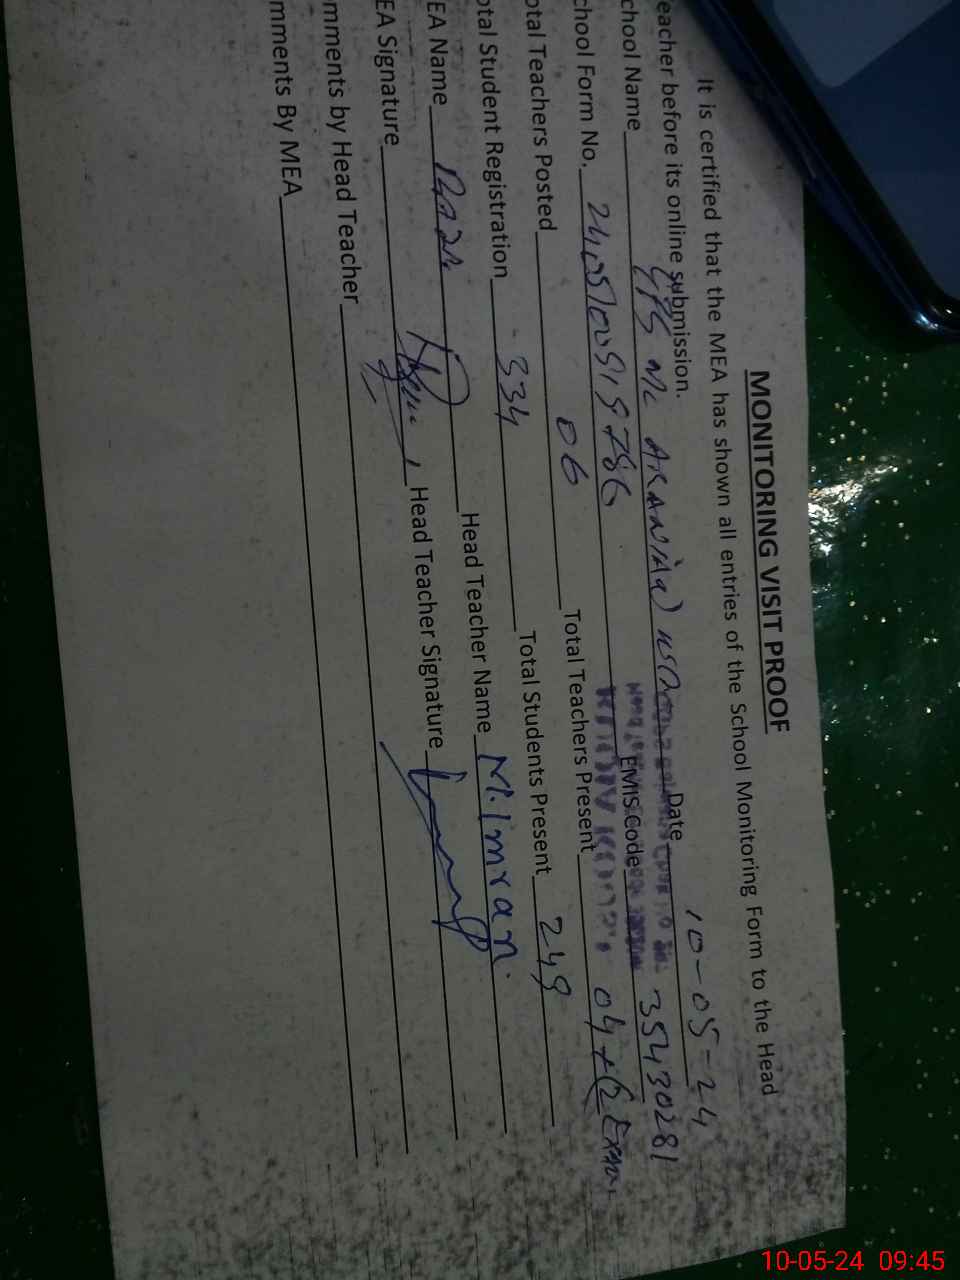 MONITORING VISIT PROOF
It is certified that the MEA has shown all entries of the School Monitoring Form to the Head
eacher before its online submission.
chool Name GPS Date 10-05-24
chool Form No. EMIS Code 35430281
otal Teachers Posted 06 Total Teachers Present 04+(2 Exam
otal Student Registration 334 Total Students Present 249
EA Name Head Teacher Name M. Imran.
EA Signature Head Teacher Signature
mments by Head Teacher
mments By MEA
10-05-24 09:45